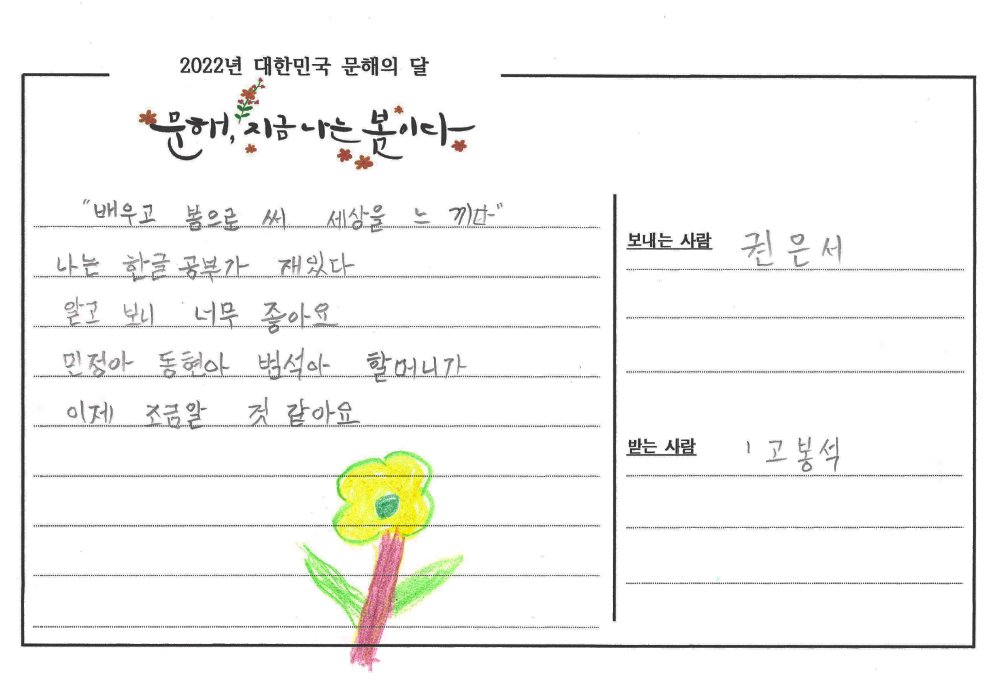 2022년 대한민국 문해의 달
문해, 지금 나는 봄이다
"배우고 봄으로 써 세상을 느 끼다"
나는 한글 공부가 재있다
알고 보니 너무 좋아요
민정아 동현아 범석아 할머니가
이제 조금알 것 같아요
보내는 사람 권은서
받는 사람 고봉석